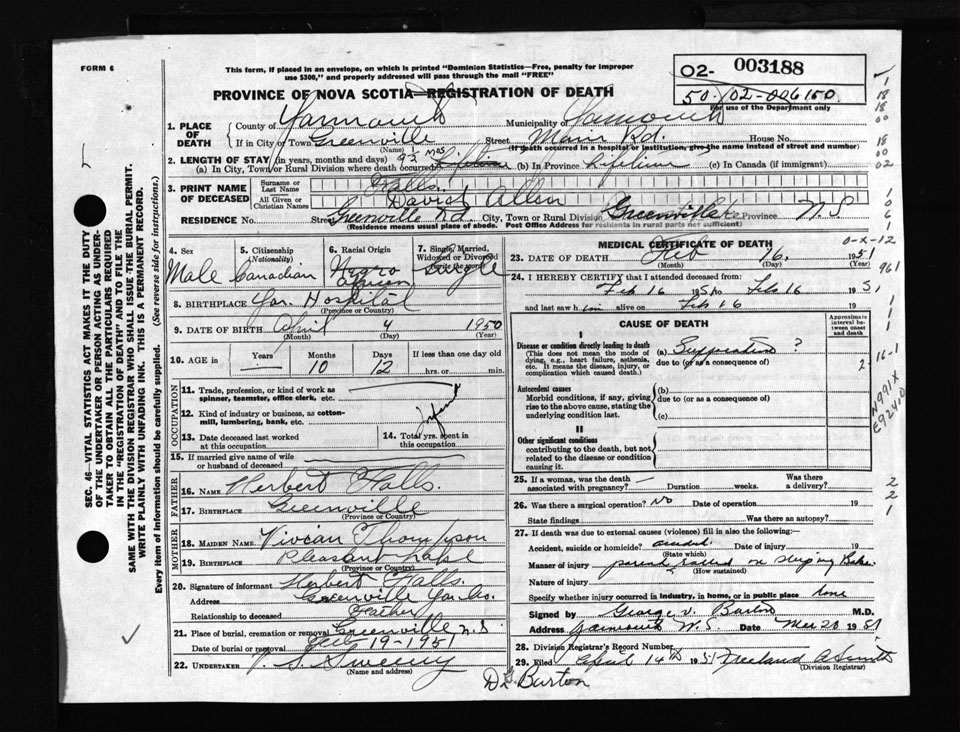 FORM 6
This form, if placed in an envelope, on which is printed "Dominion Statistics—Free, penalty for improper
use $300," and properly addressed will pass through the mail "FREE"
O2- 003188
50-02-006150
For use of the Department only
PROVINCE OF NOVA SCOTIA—REGISTRATION OF DEATH
1. PLACE OF DEATH
County of Yarmouth Municipality of Yarmouth
If in City or Town Greenville Street Main Rd. House No.
(Name) (If death occurred in a hospital or institution, give the name instead of street and number)
2. LENGTH OF STAY (in years, months and days)
(a) In City, Town/or Rural Division where death occurred (b) In Province Lifetime (c) In Canada (if immigrant)
3. PRINT NAME OF DECEASED
Surname or Last Name Falls
All Given or Christian Names David Allen
RESIDENCE No. Street Greenville Rd. City, Town or Rural Division Greenville Province N.S
(Residence means usual place of abode. Post Office Address for residents in rural parts not sufficient)
4. Sex Male
5. Citizenship (Nationality) Canadian
6. Racial Origin Negro African
7. Single, Married, Widowed or Divorced (write the word) Single
8. BIRTHPLACE Yar. Hospital
(Province or Country)
9. DATE OF BIRTH April 4 1950
(Month) (Day) (Year)
10. AGE in Years — Months 10 Days 12 If less than one day old hrs. or min.
OCCUPATION
11. Trade, profession, or kind of work as spinner, teamster, office clerk, etc.
12. Kind of industry or business, as cotton-mill, lumbering, bank, etc. Infant
13. Date deceased last worked at this occupation
14. Total yrs. spent in this occupation
15. If married give name of wife or husband of deceased
FATHER
16. NAME Herbert Falls.
17. BIRTHPLACE Greenville
(Province or Country)
MOTHER
18. MAIDEN NAME Vivian Thompson
19. BIRTHPLACE Pleasant Lake
(Province or Country)
20. Signature of informant Herbert Falls.
Address Greenville Yar. Co.
Relationship to deceased Father
21. Place of burial, cremation or removal Greenville N.S.
Date of burial or removal Feb-19-1951
22. UNDERTAKER V. S. Sweeny
(Name and address)
MEDICAL CERTIFICATE OF DEATH
23. DATE OF DEATH Feb 16, 1951
(Month) (Day) (Year)
24. I HEREBY CERTIFY that I attended deceased from
Feb 16 1951 to Feb 16 1951
and last saw h im alive on Feb 16
CAUSE OF DEATH
Approximate interval between onset and death
I
Disease or condition directly leading to death
(This does not mean the mode of dying, e.g., heart failure, asthenia, etc. It means the disease, injury, or complication which caused death.)
(a) Suffocation ?
due to (or as a consequence of)
Antecedent causes
Morbid conditions, if any, giving rise to the above cause, stating the underlying condition last.
(b)
due to (or as a consequence of)
(c)
II
Other significant conditions
contributing to the death, but not related to the disease or condition causing it.
25. If a woman, was the death associated with pregnancy? — Duration weeks. Was there a delivery?
26. Was there a surgical operation? No Date of operation 19
State findings Was there an autopsy?
27. If death was due to external causes (violence) fill in also the following:
Accident, suicide or homicide? accid. Date of injury 19
(State which)
Manner of injury parent rolled on sleeping Babe.
(How sustained)
Nature of injury
Specify whether injury occurred in industry, in home, or in public place home
Signed by George V. Burton M.D.
Address Yarmouth N.S. Date Mar 20 1951
28. Division Registrar's Record Number
29. Filed April 14th 1951 Freeland A Smith
(Division Registrar)
Dr. Burton
0-X-12
961
16-1
N991X
E924.0
SEC. 46 VITAL STATISTICS ACT MAKES IT THE DUTY
OF THE UNDERTAKER OR PERSON ACTING AS UNDER-
TAKER TO OBTAIN ALL THE PARTICULARS REQUIRED
IN THE "REGISTRATION OF DEATH" AND TO FILE THE
SAME WITH THE DIVISION REGISTRAR WHO SHALL ISSUE THE BURIAL PERMIT.
WRITE PLAINLY WITH UNFADING INK. THIS IS A PERMANENT RECORD.
Every item of information should be carefully supplied. (See reverse side for instructions.)